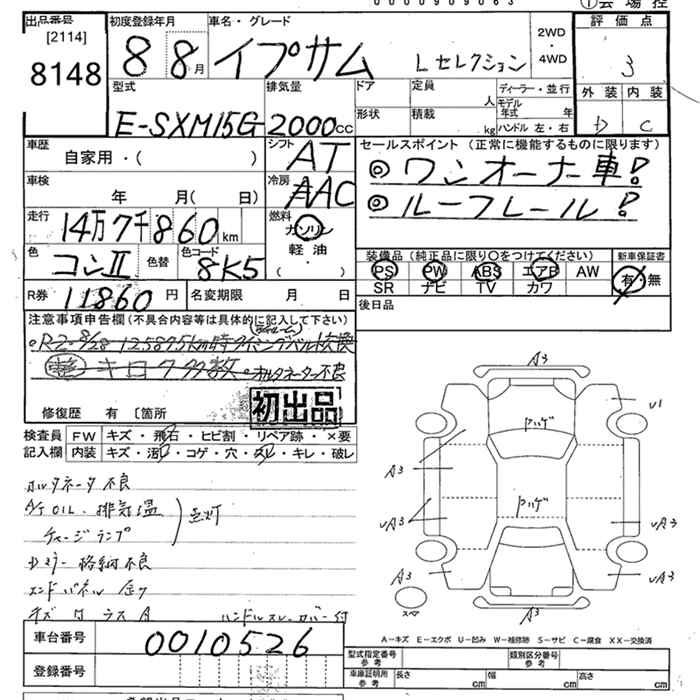 0000909063
①会場控
出品番号 初度登録年月 車名・グレード 2WD・4WD 評価点
[2114]
8148
8 8月 イプサム Lセレクション 3
型式 排気量 ドア 定員 人 ディーラー・並行 外装 内装
モデル年式 年
形状 積載 kg ハンドル 左・右
E-SXM15G 2000cc D C
車歴 シフト AT セールスポイント (正常に機能するものに限ります)
自家用・( )
◎ワンオーナー車!
車検 冷房 AAC
年 月( 日)
◎ルーフレール!
走行 14万7千860km 燃料 ガソリン
軽油
( )
色 コンⅡ 色替 色コード 8K5
装備品 (純正品に限り○をつけてください) 新車保証書
PS PW ABS エアB AW 有・無
SR ナビ TV カワ
R券 11860円 名変期限 月 日
後日品
注意事項申告欄 (不具合内容等は具体的に記入して下さい)
タイミングベルト交換
キロ 多数 ・オルタネーター不良
初出品
修復歴 有 〔箇所
検査員記入欄 FW キズ・飛石・ヒビ割・リペア跡・×要
内装 キズ・汚レ・コゲ・穴・スレ・キレ・破レ
オルタネータ不良
A/T OIL、排気温
チャージランプ
点灯
Dミラー格納不良
エンドパネル
キズ
ハンドルスレ カバー付
車台番号 0010526
登録番号
A3
U1
ハゲ
A3
ハゲ
A3
A3
A3
スペア
A3
A-キズ E-エクボ U-凹み W-補修跡 S-サビ C-腐食 XX-交換済
型式指定番号 参考 類別区分番号 参考
車庫証明用 参考 長さ cm 幅 cm 高さ cm